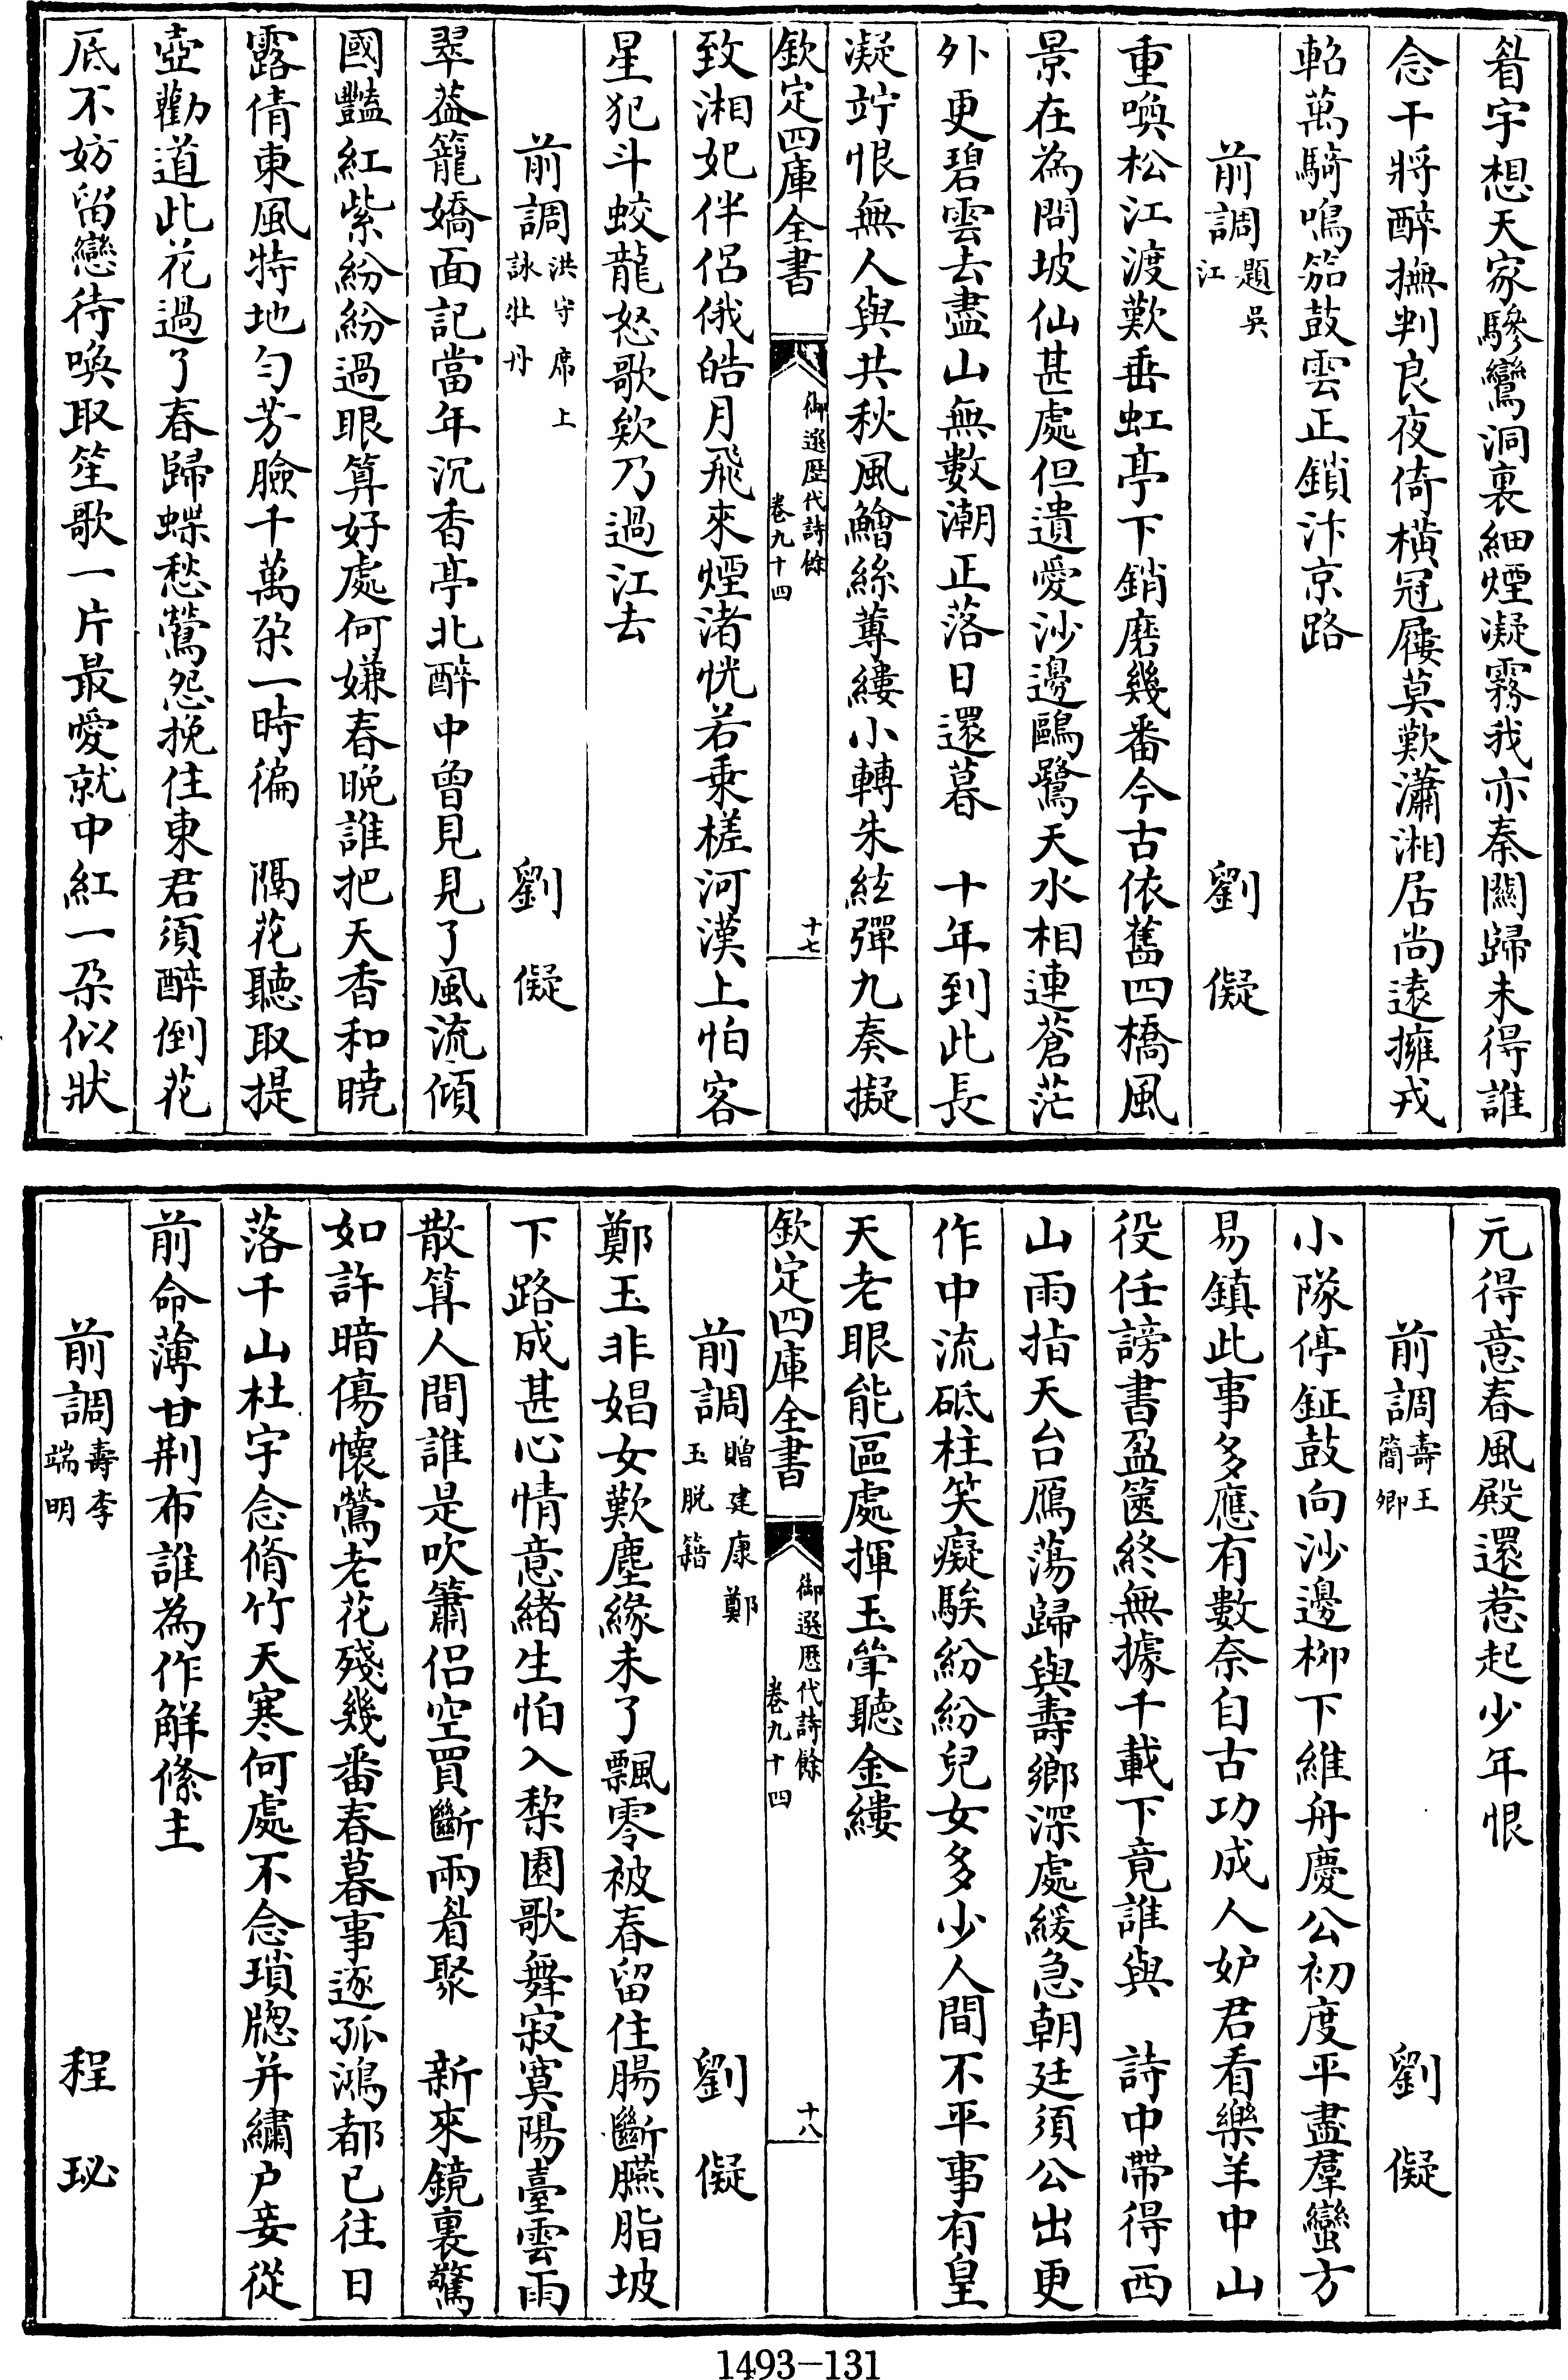 眉宇想天家驂鸞洞裏細煙凝霧我亦秦關歸未得誰
念干將醉撫判良夜倚橫冠屨莫歎瀟湘居尚遠擁戎
軺萬騎鳴笳鼓雲正鎖汴京路
前調題吳江 劉儗
重喚松江渡歎垂虹亭下銷磨幾番今古依舊四橋風
景在為問坡仙甚處但遺愛沙邊鷗鷺天水相連蒼茫
外更碧雲去盡山無數潮正落日還暮 十年到此長
凝竚恨無人與共秋風鱠絲蓴縷小轉朱絃彈九奏擬
欽定四庫全書 御選歷代詩餘 卷九十四 十七
致湘妃伴侶俄皓月飛來煙渚恍若乗槎河漢上怕客
星犯斗蛟龍怒歌欸乃過江去
前調洪守席上詠牡丹 劉儗
翠葢籠嬌面記當年沉香亭北醉中曾見見了風流傾
國豔紅紫紛紛過眼算好處何嫌春晚誰把天香和曉
露倩東風特地勻芳臉千萬朶一時徧 隔花聽取提
壺勸道此花過了春歸蝶愁鶯怨挽住東君須醉倒花
底不妨留戀待喚取笙歌一片最愛就中紅一朶似狀
元得意春風殿還惹起少年恨
前調壽王簡卿 劉儗
小隊停鉦鼓向沙邊柳下維舟慶公初度平盡羣蠻方
易鎮此事多應有數奈自古功成人妒君看樂羊中山
役任謗書盈篋終無據千載下竟誰與 詩中帶得西
山雨指天台鴈蕩歸與壽鄉深處緩急朝廷須公出更
作中流砥柱笑癡騃紛紛兒女多少人間不平事有皇
天老眼能區處揮玉筆聽金縷
欽定四庫全書 御選歷代詩餘 卷九十四 十八
前調贈建康鄭玉脫籍 劉儗
鄭玉非娼女歎塵緣未了飄零被春留住腸斷臙脂坡
下路成甚心情意緒生怕入棃園歌舞寂寞陽臺雲雨
散算人間誰是吹簫侶空買斷兩眉聚 新來鏡裏驚
如許暗傷懷鶯老花殘幾番春暮事逐孤鴻都已往日
落千山杜宇念脩竹天寒何處不念瑣牕并繡户妾從
前命薄甘荆布誰為作解絛主
前調壽李端明 程珌
1493—131